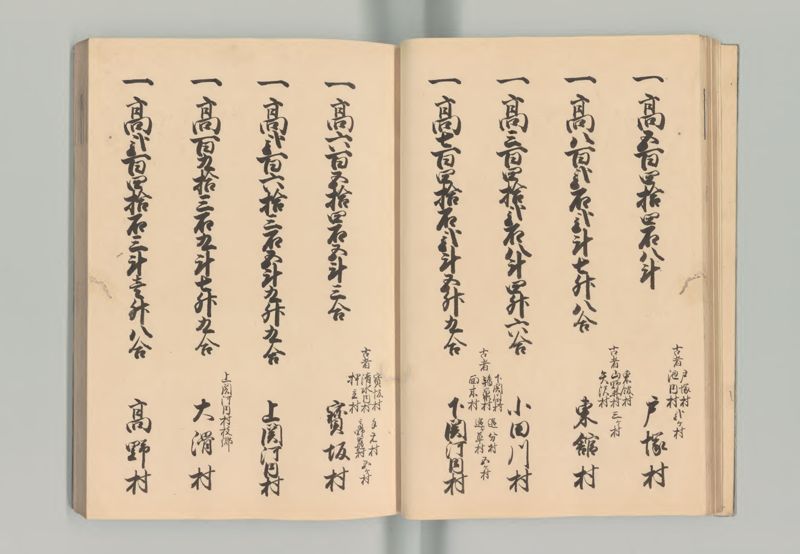 一 高五百四拾四石八斗
古者 戸塚村
池田村 弐ケ村
戸塚村
一 高八百弐石弐斗七升八合
古者 東舘村
山野井村
矢沢村 三ケ村
東舘村
一 高三百四拾弐石八斗四升六合
小田川村
一 高七百四拾石弐斗五升九合
古者 下関河内村
追分村
五ケ村
下関河内村
一 高六百五拾四石五斗三合
古者 宝坂村
清水内村
押立村
五ケ村
寶坂村
一 高弐百六拾三石五斗九升九合
上関河内村
一 高百九拾三石九斗七升九合
上関河内村枝郷
大渭村
一 高弐百四拾石三斗壱升八合
高野村